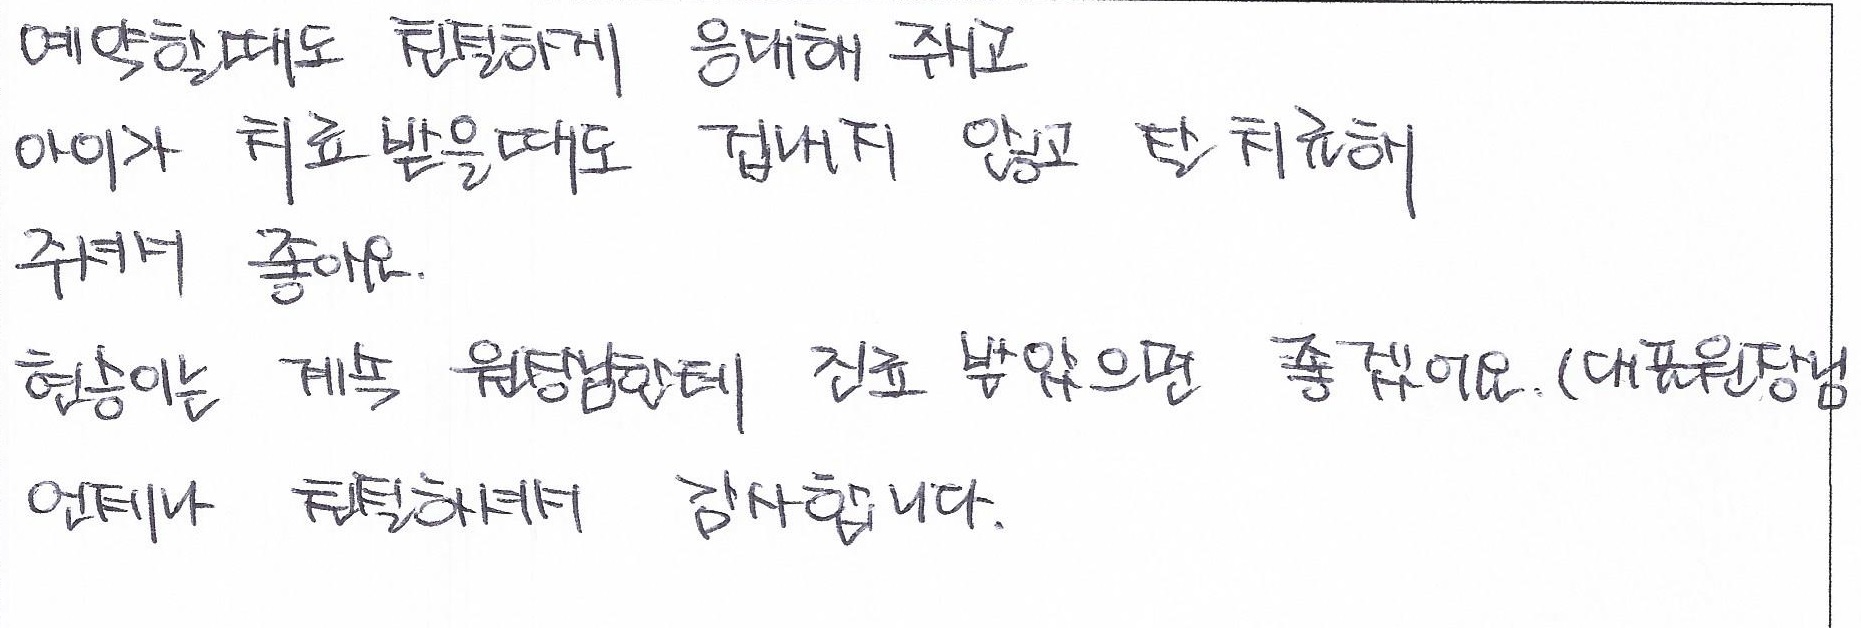 예약할때도 친절하게 응대해 주시고
아이가 치료 받을때도 겁내지 않고 잘 치료해
주셔서 좋아요.
현승이는 계속 원장님한테 진료 받았으면 좋겠어요. (대표원장님
언제나 친절하셔서 감사합니다.